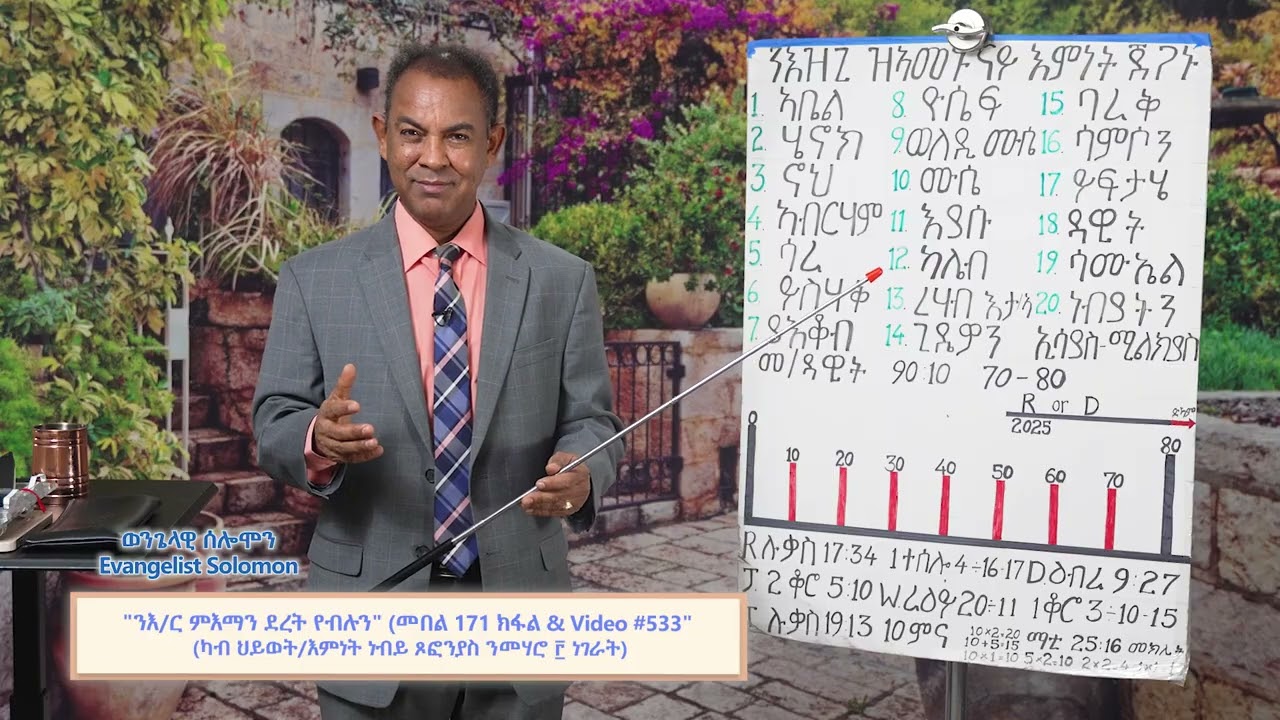 ንእዝጊ ዝኣመኑ ናይ እምነት ጀጋኑ
1. ኣቤል 8. ዮሴፍ 15. ባረቅ
2. ሄኖክ 9. ወለዲ ሙሴ 16. ሳምሶን
3. ኖህ 10. ሙሴ 17. ዮፍታሄ
4. ኣብርሃም 11. እያሱ 18. ዳዊት
5. ሳረ 12. ካሌብ 19. ሳሙኤል
6. ይስሃቅ 13. ረሃብ 20. ነብያትን
7. ያእቆብ 14. ጊዴዎን ኢሳያስ-ሚልክያስ
መ/ዳዊት 90:10 70-80
R or D
2025
0 10 20 30 40 50 60 70 80
R ሉቃስ 17:34 1ተሰሎ 4÷16-17 D ዕብረ 9:27
J. 2 ቆሮ 5:10 ዮሓ ራእይ 20÷11 1ቆሮ 3÷10-15
ሉቃስ 19:13 10 ምና 10×2=20 ማቴ 25:16
10+5=15
10×1=10 5×2=10
ወንጌላዊ ሰሎሞን
Evangelist Solomon
"ንእ/ር ምእማን ደረት የብሉን" (መበል 171 ክፋል & Video #533"
(ካብ ህይወት/እምነት ነብይ ጾፎንያስ ንመሃሮ ፫ ነገራት)